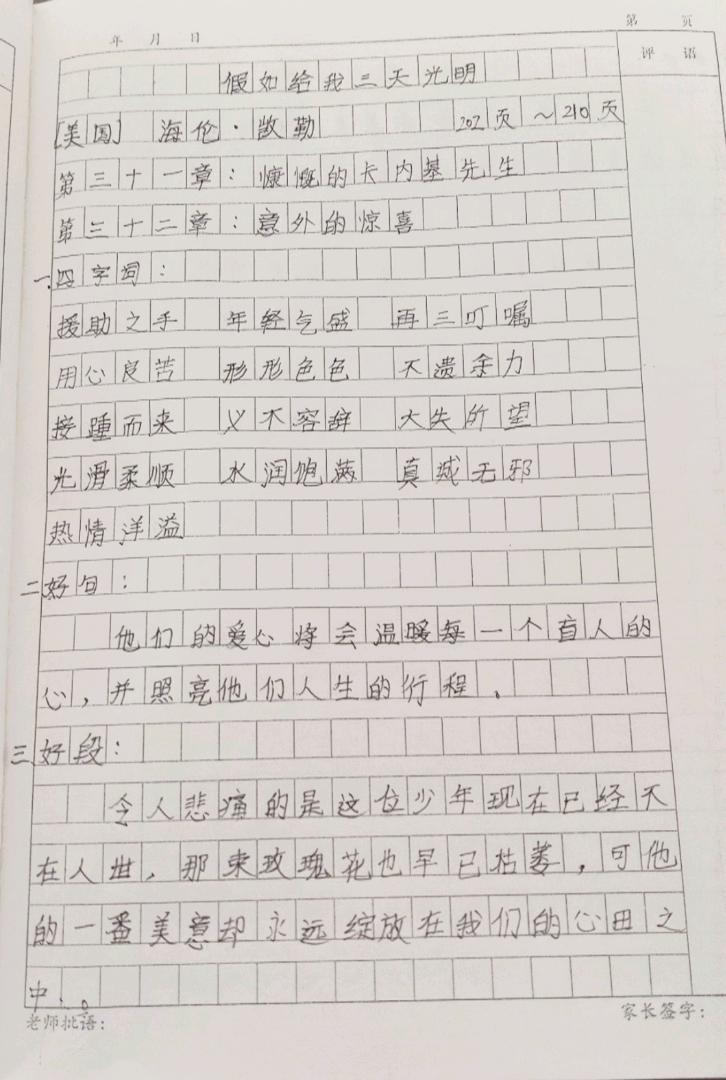 第 页
年 月 日
评 语
假如给我三天光明
[美国] 海伦·凯勒 202页~210页
第三十一章:慷慨的卡内基先生
第三十二章:意外的惊喜
一、四字词:
援助之手 年轻气盛 再三叮嘱
用心良苦 形形色色 不遗余力
接踵而来 义不容辞 大失所望
光滑柔顺 水润饱满 真诚无邪
热情洋溢
二好句:
他们的爱心将会温暖每一个盲人的
心,并照亮他们人生的行程。
三好段:
令人悲痛的是这位少年现在已经不
在人世,那束玫瑰花也早已枯萎,可他
的一番美意却永远绽放在我们的心田之
中。
老师批语: 家长签字: